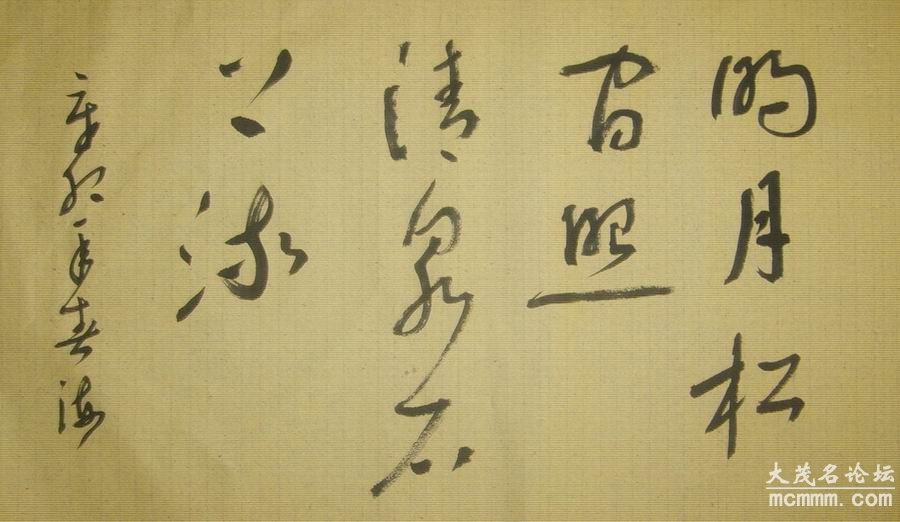 明月松
间照
清泉石
上流
辛卯年春海
大茂名论坛
mcmmm.com